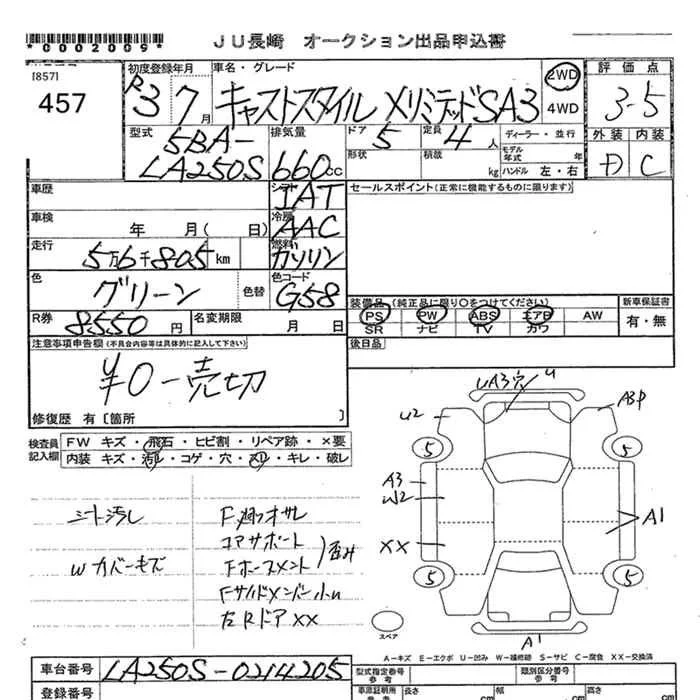 *0002009*
JU長崎 オークション出品申込書
[857]
457
初度登録年月
R3 7月
車名・グレード
キャストスタイル メリミテッドSA3
2WD
4WD
評価点
3.5
外装 内装
D C
型式
5BA-
LA250S
排気量
660cc
ドア 5
定員 4人
ディーラー・並行
形状
積載 kg
モデル年式 年
ハンドル 左・右
車歴
シフト
IAT
セールスポイント(正常に機能するものに限ります)
車検 年 月(日)
冷房
AAC
走行
5万6千805km
燃料
ガソリン
色
グリーン
色替
色コード
G58
装備品(純正品に限り○をつけてください)
新車保証書
PS PW ABS エアB AW
有・無
SR ナビ TV カワ
R券
8550円
名変期限 月 日
後日品
注意事項申告欄(不具合内容等は具体的に記入して下さい)
¥0-売切
修復歴 有〔箇所 〕
検査員記入欄
FW キズ・飛石・ヒビ割・リペア跡・×要
内装 キズ・汚れ・コゲ・穴・スリ・キレ・破レ
シート汚レ
Wカバーキズ
コアサポート
Fホースメント
左Rドアxx
UA3穴 u
A3P
u2
5
5
A3
W2
XX
A1
5
5
スペア
A1
A-キズ E-エクボ U-凹み W-補修跡 S-サビ C-腐食 XX-交換済
車台番号
LA250S-0214205
登録番号
型式指定番号
参考
類別区分番号
参考
車庫証明用
参考
長さ cm
幅 cm
高さ cm